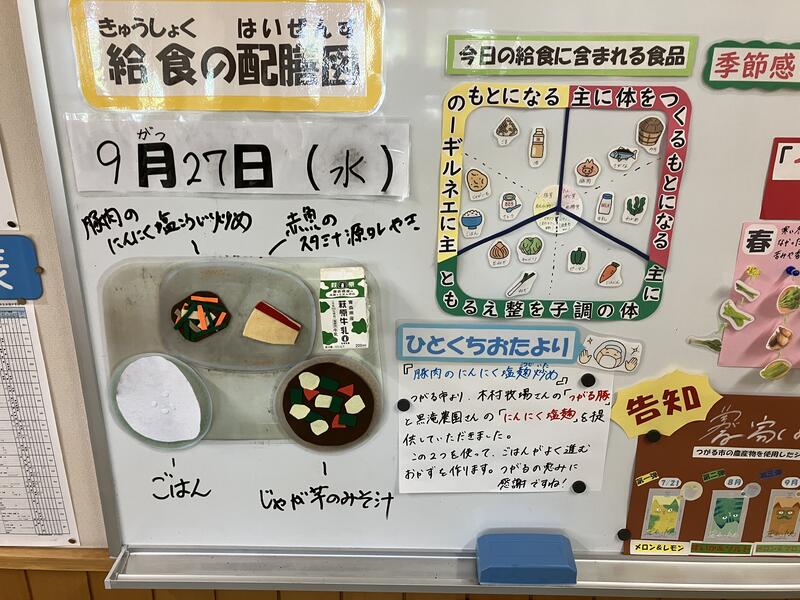 きゅうしょく はいぜんず
給食の配膳図
がつ
9月27日(水)
豚肉の
にんにく塩こうじ炒め
赤魚の
スタミナ源タレやき
萩原牛乳
200ml
ごはん
じゃが芋のみそ汁
今日の給食に含まれる食品
主に体をつくるもとになる
主に体の調子を整えるもとになる
主にエネルギーのもとになる
ごはん
豚肉
牛乳
わかめ
キャベツ
ピーマン
にんじん
ひとくちおたより
『豚肉のにんにく塩麹炒め』
つがる市より、木村牧場さんの「つがる豚」
と黒滝農園さんの「にんにく塩麹」を提
供していただきました。
この2つを使って、ごはんがよく進む
おかずを作ります。つがるの恵みに
感謝ですね!
季節感
春
告知
つがる市の農産物を使用したジ
第一弾
7/21
メロン&レモン
第二弾
8月
第三弾
9月